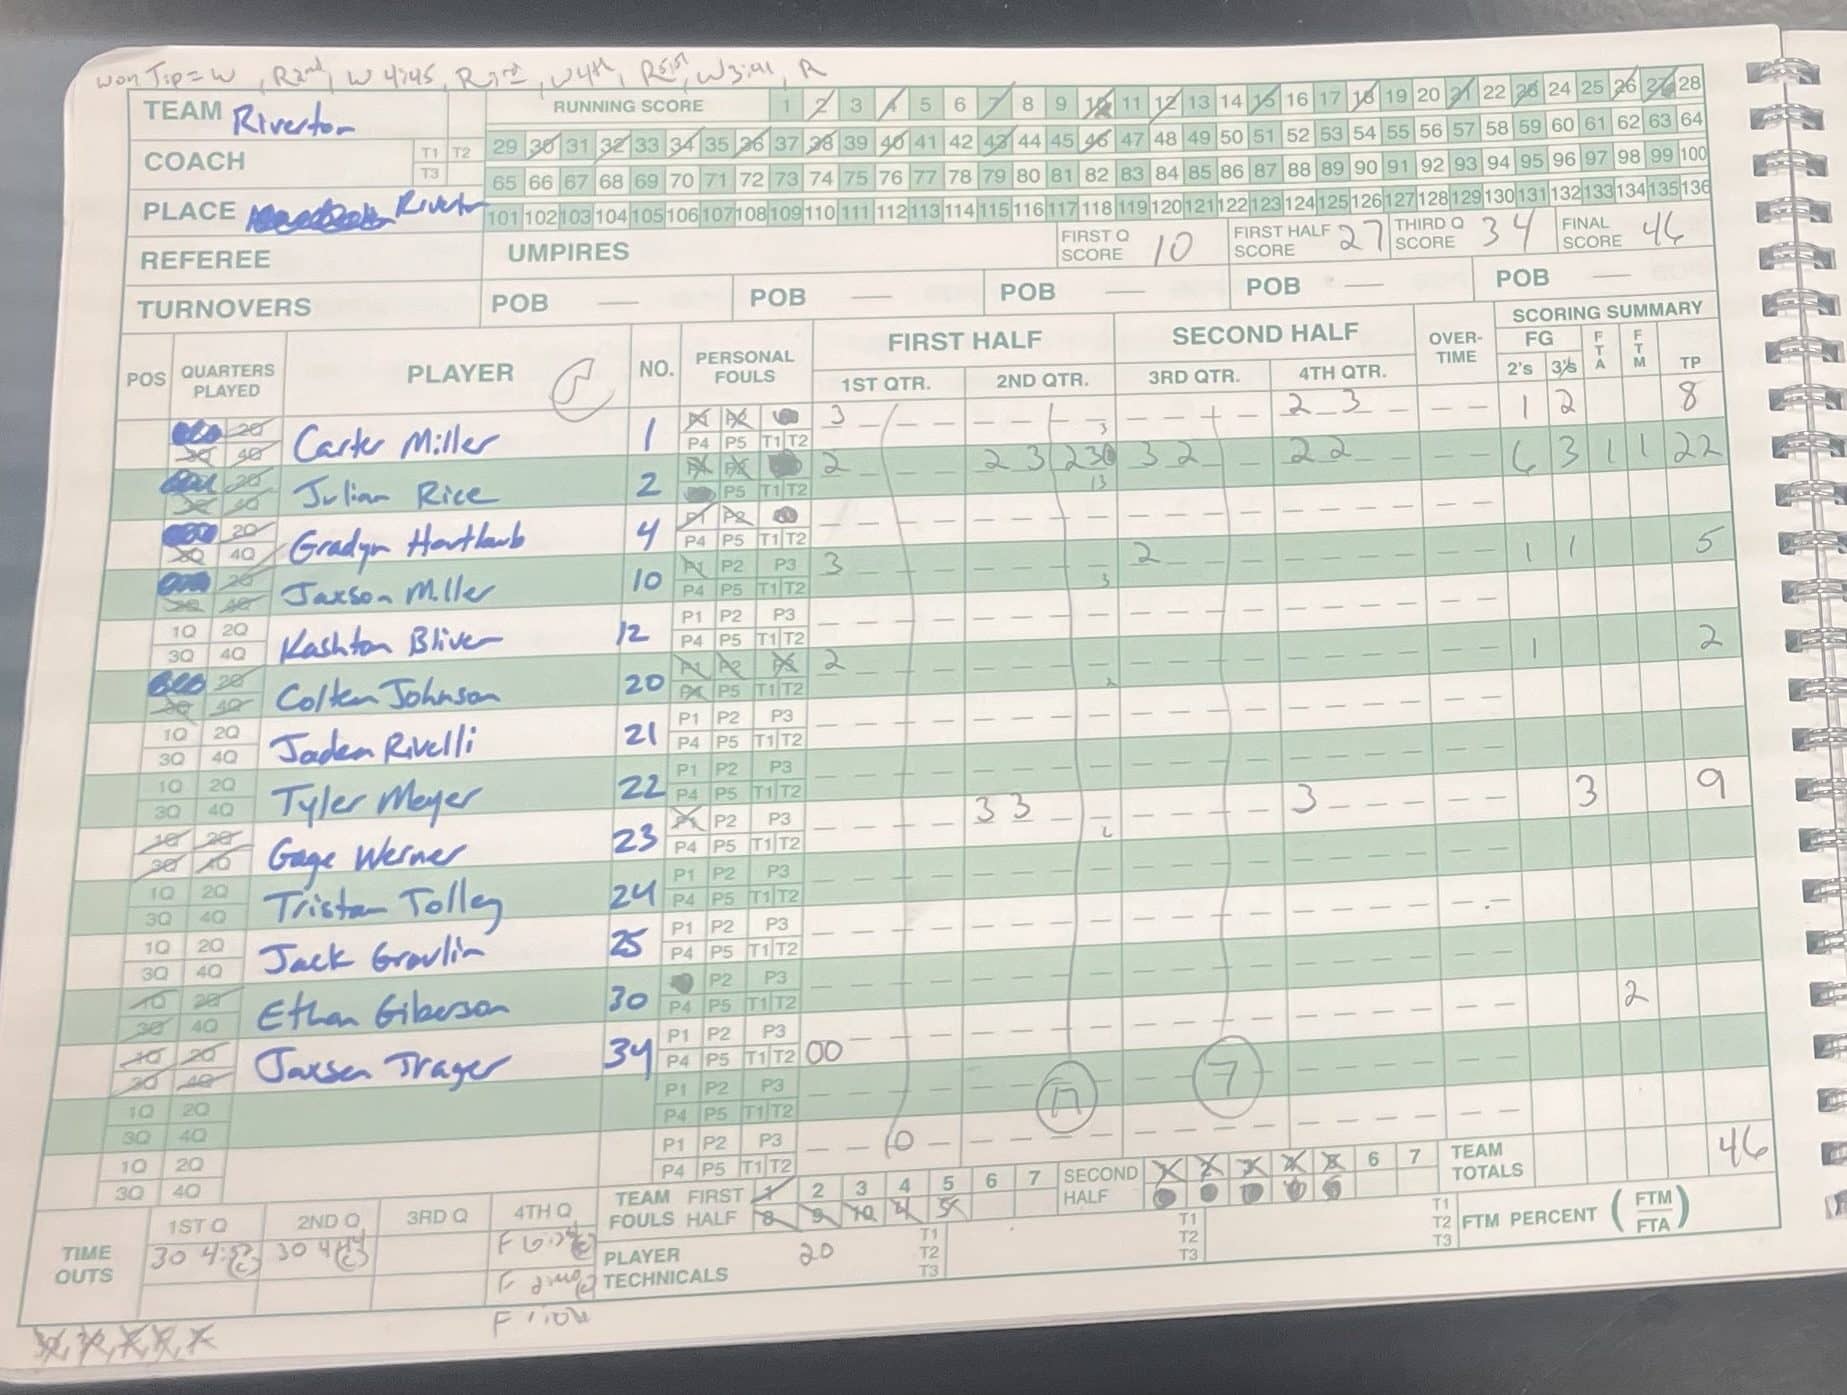 won Tip = W, R 2nd, W 4:45, R 3rd, W 4th, R 5:51, W 3:41, R
TEAM Riverton RUNNING SCORE 1 2 3 4 5 6 7 8 9 10 11 12 13 14 15 16 17 18 19 20 21 22 23 24 25 26 27 28
29 30 31 32 33 34 35 36 37 38 39 40 41 42 43 44 45 46 47 48 49 50 51 52 53 54 55 56 57 58 59 60 61 62 63 64
COACH T1 T2 T3 65 66 67 68 69 70 71 72 73 74 75 76 77 78 79 80 81 82 83 84 85 86 87 88 89 90 91 92 93 94 95 96 97 98 99 100
PLACE Riverton 101 102 103 104 105 106 107 108 109 110 111 112 113 114 115 116 117 118 119 120 121 122 123 124 125 126 127 128 129 130 131 132 133 134 135 136
REFEREE UMPIRES FIRST Q SCORE 10 FIRST HALF SCORE 27 THIRD Q SCORE 34 FINAL SCORE 46
TURNOVERS POB — POB — POB — POB — POB —
POS QUARTERS PLAYED PLAYER NO. PERSONAL FOULS FIRST HALF SECOND HALF OVER-TIME SCORING SUMMARY
1ST QTR. 2ND QTR. 3RD QTR. 4TH QTR. FG 2's 3's FTA FTM TP
2Q 3Q 4Q Carter Miller 1 P1 P2 P4 P5 T1 T2 3 3 2 3 1 2 8
2Q 3Q 4Q Julian Rice 2 P1 P2 P5 T1 T2 2 2 3 2 3 13 3 2 2 2 6 3 1 1 22
2Q 3Q 4Q Gradyn Hartlaub 4 P1 P2 P4 P5 T1 T2
2Q 3Q 4Q Jaxson Miller 10 P1 P2 P3 P4 P5 T1 T2 3 3 2 1 1 5
1Q 2Q 3Q 4Q Kashton Bliven 12 P1 P2 P3 P4 P5 T1 T2
2Q 3Q 4Q Colten Johnson 20 P1 P2 P3 P4 P5 T1 T2 2 2 1 2
1Q 2Q 3Q 4Q Jaden Rivelli 21 P1 P2 P3 P4 P5 T1 T2
1Q 2Q 3Q 4Q Tyler Meyer 22 P1 P2 P3 P4 P5 T1 T2
1Q 2Q 3Q 4Q Gage Werner 23 P1 P2 P3 P4 P5 T1 T2 3 3 6 3 3 9
1Q 2Q 3Q 4Q Tristan Tolley 24 P1 P2 P3 P4 P5 T1 T2
1Q 2Q 3Q 4Q Jack Gravlin 25 P1 P2 P3 P4 P5 T1 T2
1Q 2Q 3Q 4Q Ethan Giberson 30 P2 P3 P4 P5 T1 T2
1Q 2Q 3Q 4Q Jaxsen Trager 34 P1 P2 P3 P4 P5 T1 T2 00 2
1Q 2Q 3Q 4Q P1 P2 P3 P4 P5 T1 T2 17 7
1Q 2Q 3Q 4Q P1 P2 P3 P4 P5 T1 T2 10
TEAM FOULS FIRST HALF 1 2 3 4 5 6 7 8 9 10 SECOND HALF 1 2 3 4 5 6 7 TEAM TOTALS 46
TIME OUTS 1ST Q 2ND Q 3RD Q 4TH Q
PLAYER TECHNICALS 20 T1 T2 T3 T1 T2 T3 T1 T2 T3 FTM PERCENT (FTM/FTA)